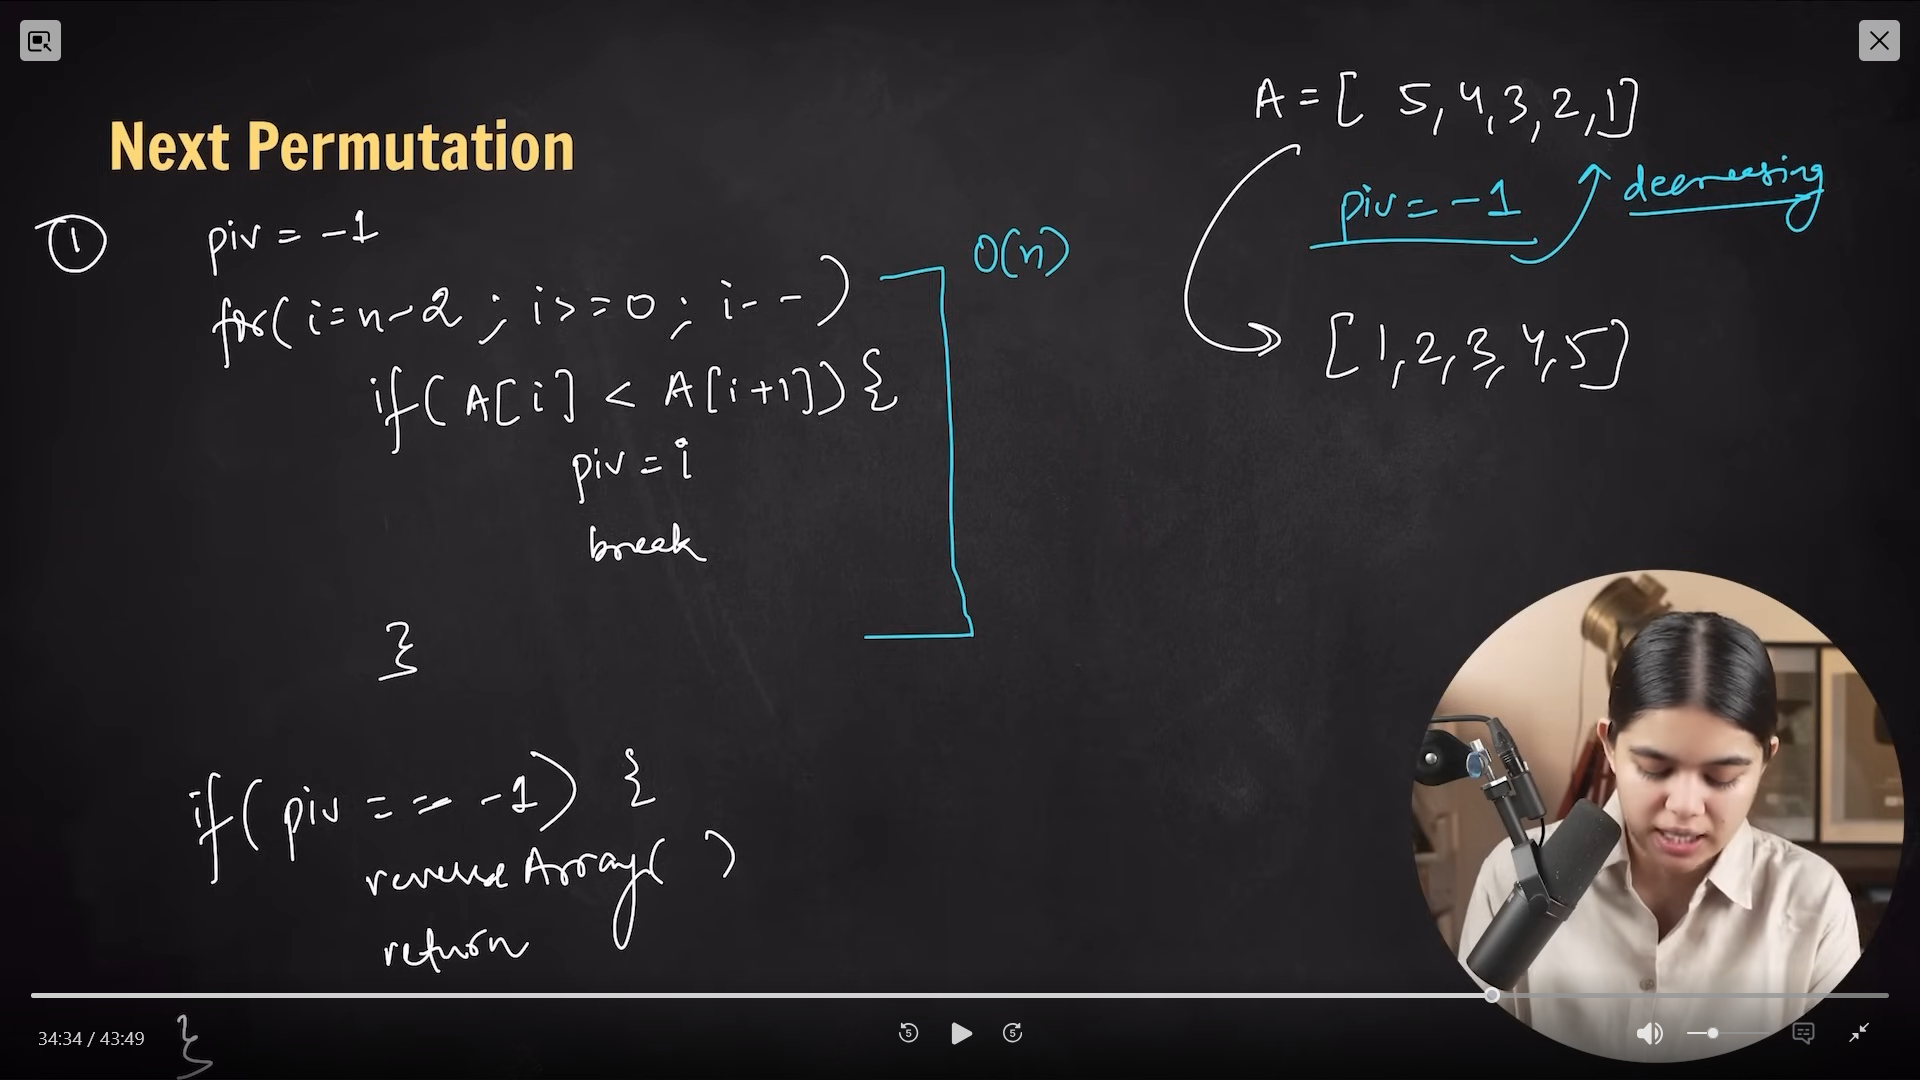 Next Permutation
① piv = -1
for( i=n-2 ; i>=0 ; i-- )
if( A[i] < A[i+1]) {
piv = i
break
}
O(n)
if( piv == -1) {
reverse Array( )
return
}
A = [ 5,4,3,2,1]
piv = -1
decreasing
[1,2,3,4,5]
34:34 / 43:49
5
5